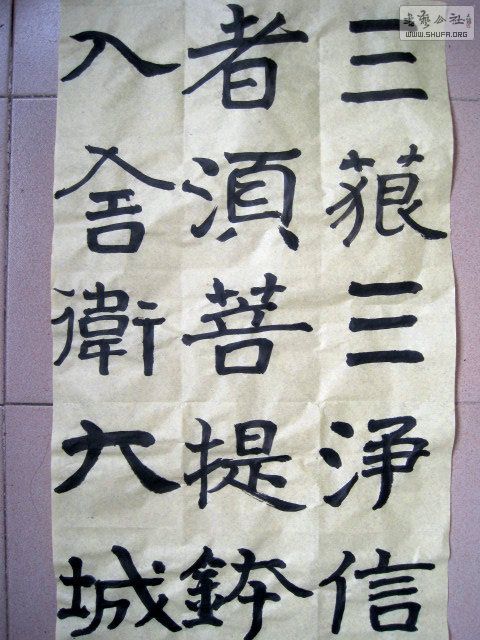 三藐三浄信
者湏菩提鉢
入舍衛大城
书艺公社
WWW.SHUFA.ORG